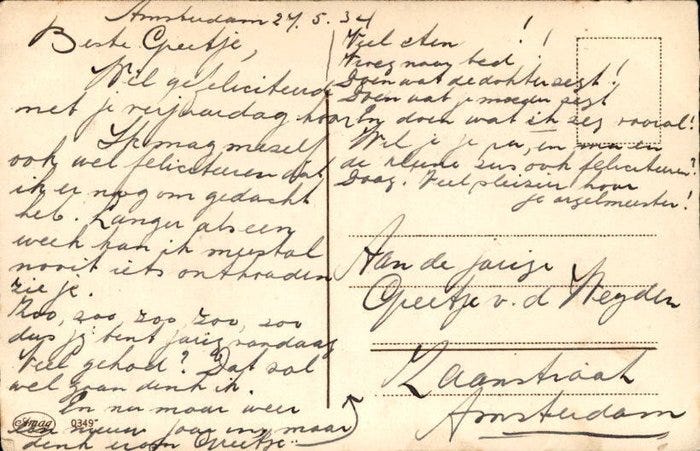 Amsterdam 27.5.34
Beste Greetje,
Wel gefeliciteerd
met je verjaardag hoor
Ik mag meself
ook wel feliciteren dat
ik er nog om gedacht
heb. Langer als een
week kan ik meestal
nooit iets onthouden
zie je.
Zoo, zoo zoo, zoo, zoo
dus jij bent jarig vandaag
Veel gehad? Dat zal
wel gaan denk ik.
En nu maar weer
een nieuw jaar in, maar
denk erom Greetje..
Veel eten !!
Vroeg naar bed !
Doen wat de dokter zegt!
Doen wat je moeder zegt
En doen wat ik zeg vooral!
Wil je je pa, en moe en
de kleine zus ook feliciteren?
Daag. Veel plezier hoor
je orgelmeester!
Aan de jarige
Greetje v. d Weyden
Zaanstraat
Amsterdam
0349